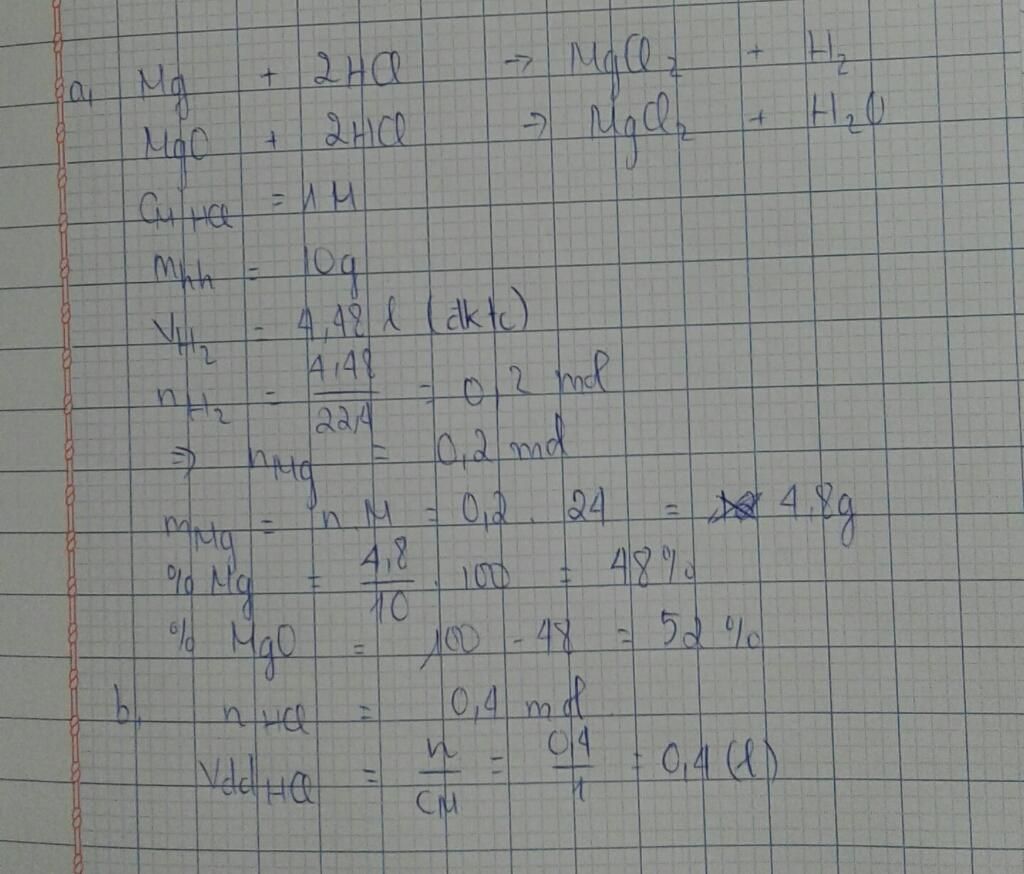 a, Mg + 2HCl → MgCl₂ + H₂
MgO + 2HCl → MgCl₂ + H₂O
CM HCl = 1M
mhh = 10g
VH₂ = 4,48 l (đktc)
nH₂ = 4,48/22,4 = 0,2 mol
⇒ nMg = 0,2 mol
mMg = n.M = 0,2 . 24 = 4,8g
% Mg = 4,8/10 . 100 = 48%
% MgO = 100 - 48 = 52 %
b, nHCl = 0,4 mol
VddHCl = n/CM = 0,4/1 = 0,4 (l)